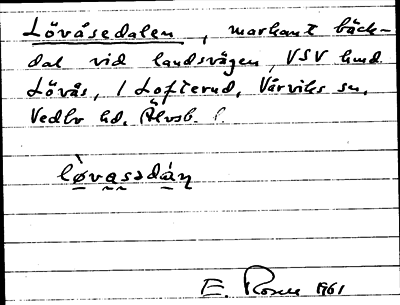 Lövåsedalen, markant bäck-
dal vid landsvägen, VSV hmd
Lövås, / Lofterud, Vårviks sn,
Vedbo hd. Älvsb. l.
lø̀vasədán
E. Rosell 1961